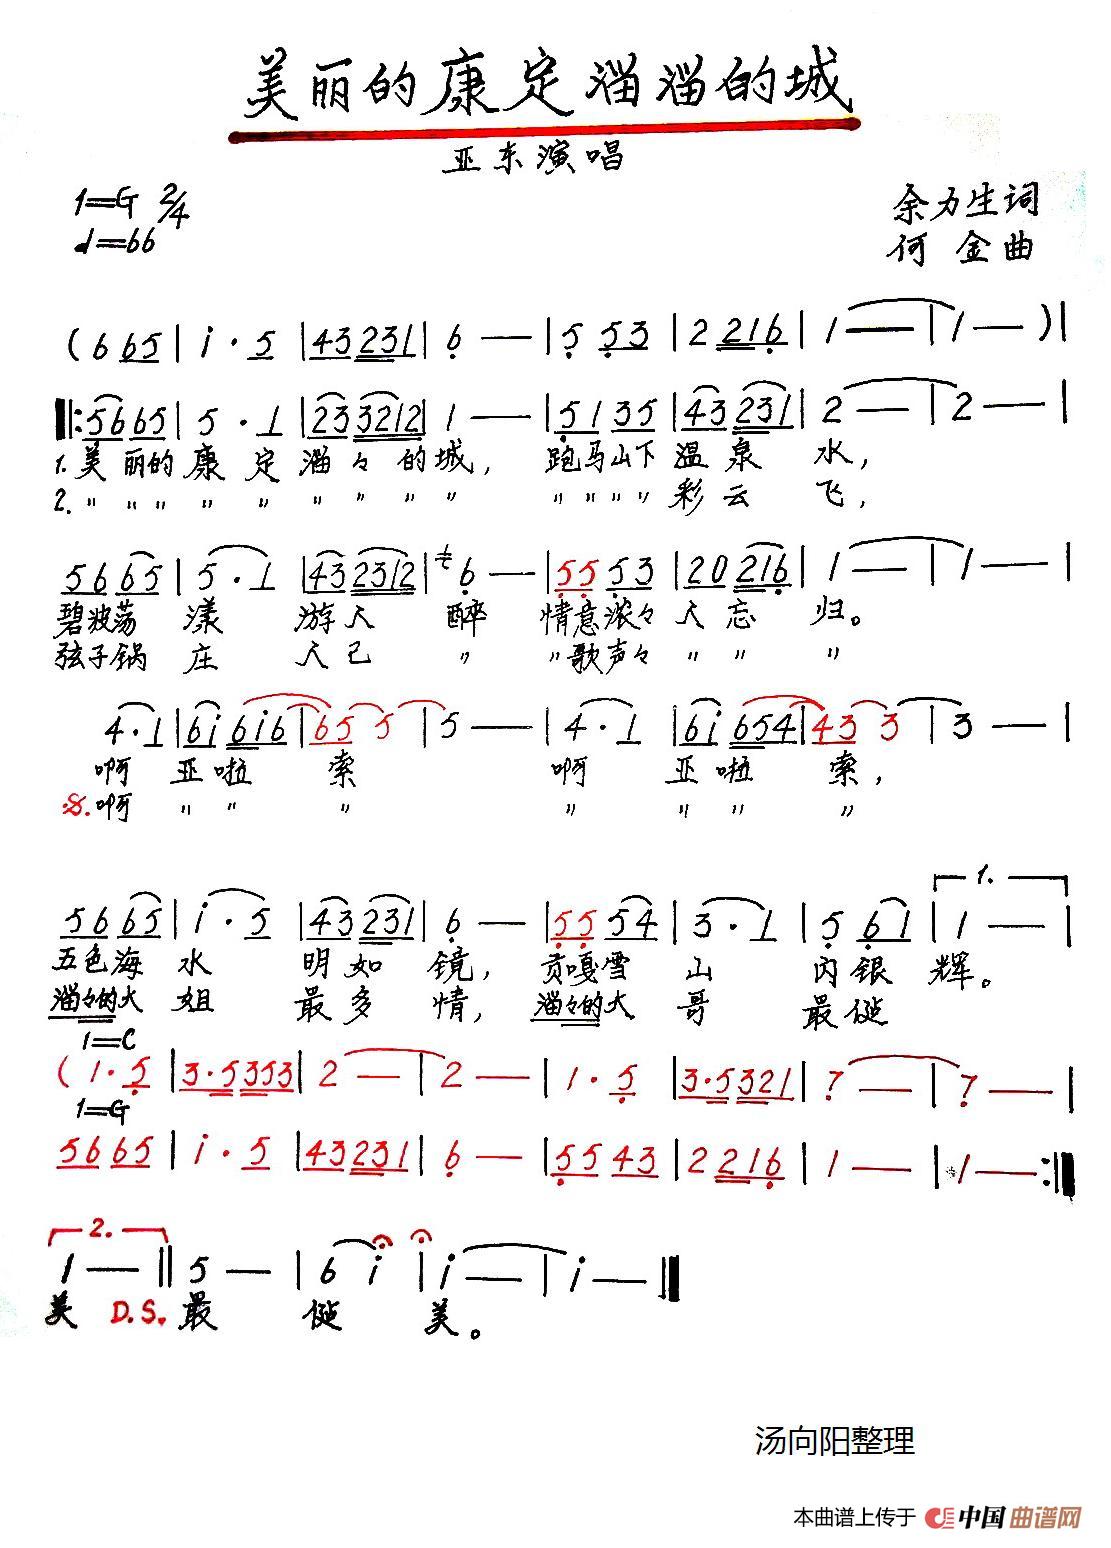 美丽的康定溜溜的城
亚东演唱
1=G 2/4
♩=66
余力生词
何金曲
(6 665 | i·5 | 43231 | 6 — | 5 53 | 2 216 | 1 — | 1 — )|
‖:5665 | 5·1 | 2333212 | 1 — | 5135 | 43231 | 2 — | 2 — |
1.美丽的康定溜々的城，跑马山下温泉水，
2.〃〃〃〃〃〃〃〃〃〃〃〃〃彩云飞，
5665 | 5·1 | 432312 | 6 — | 5553 | 20216 | 1 — | 1 — |
碧波荡漾游人醉情意浓々人忘归。
弦子锅庄人已〃〃歌声々〃〃〃
4·1 | 6i6i6 | 65 5 | 5 — | 4·1 | 6i654 | 43 3 | 3 — |
啊亚啦索啊亚啦索，
𝄋.啊〃〃〃〃〃〃〃
1.
5665 | i·5 | 43231 | 6 — | 5554 | 3·1 | 5 61 | 1 — |
五色海水明如镜，贡嘎雪山闪银辉。
溜々的大姐最多情，溜々的大哥最
1=C
(1·5 | 3·5353 | 2 — | 2 — | 1·5 | 3·5321 | 7 — | 7 — |
1=G
5665 | i·5 | 43231 | 6 — | 5543 | 2 216 | 1 — | 1 — :‖
2.
1 — ‖ 5 — | 6 i | i — | i — ‖
美 D.S. 最 美。
汤向阳整理
本曲谱上传于 中国曲谱网